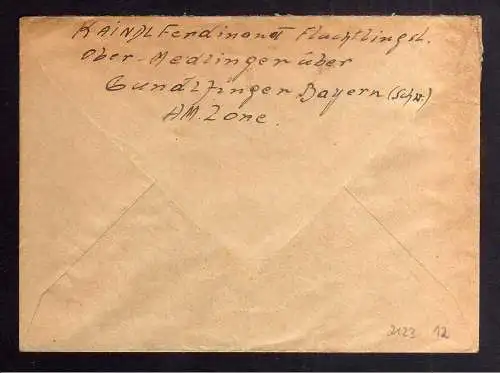 KAINDL Ferdinand Fluchtlingsl.
Ober-Medlingen über
Gundlfingen Bayern (Schw.)
AM. Zone.
2123 12